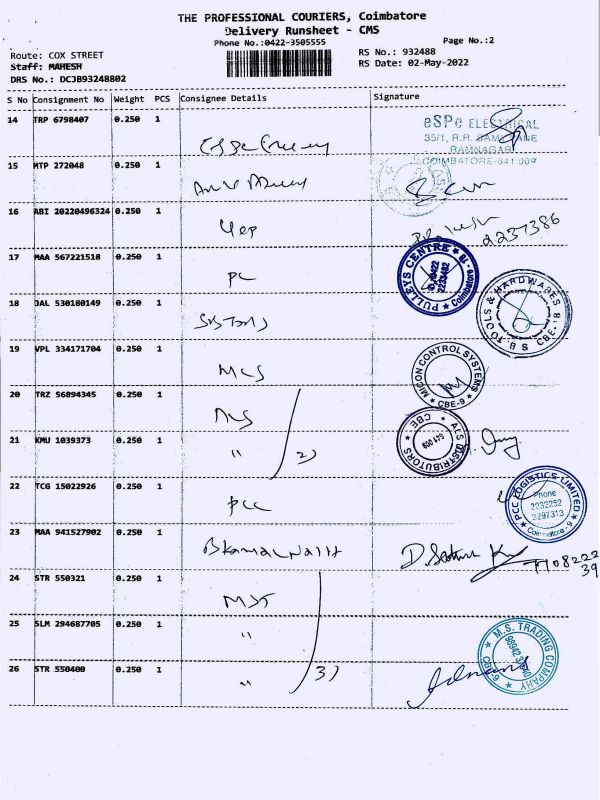 THE PROFESSIONAL COURIERS, Coimbatore
Delivery Runsheet - CMS
Phone No.:0422-3505555
Page No.:2
Route: COX STREET
RS No.: 932488
Staff: MAHESH
RS Date: 02-May-2022
DRS No.: DCJB93248802
S No Consignment No Weight PCS Consignee Details Signature
14 TRP 6798407 0.250 1
eSPe ELECTRICAL
35/1, R.R.
RAMNAGAR
COIMBATORE-641 009
15 MTP 272048 0.250 1
16 ABI 20220496324 0.250 1
2237386
17 MAA 567221518 0.250 1
PC
PULLEYS CENTRE
Coimbatore - 18
18 JAL 530180149 0.250 1
TOOLS & HARDWARES
CBE
19 VPL 334171704 0.250 1
MCS
MICON CONTROL SYSTEMS
CBE-9
20 TRZ 56894345 0.250 1
AIS DISTRIBUTORS
CBE
641 009
21 KMU 1039373 0.250 1
" 2)
22 TCG 15022926 0.250 1
PCC
PCC LOGISTICS LIMITED
Phone
2232252
3297313
Coimbatore - 9
23 MAA 941527902 0.250 1
24 STR 550321 0.250 1
MST
25 SLM 294687705 0.250 1
"
M.S. TRADING COMPANY
26 STR 550400 0.250 1
" 3)